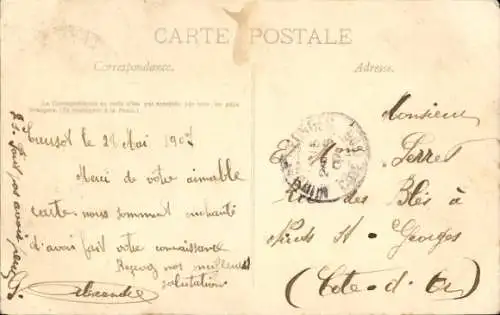 CARTE POSTALE
Correspondance.
Adresse.
La Correspondance au recto n'est pas acceptée par tous les pays
étrangers. (Se renseigner à la Poste.)
Creusot le 28 Mai 1907
Merci de votre aimable
carte nous sommes enchanté
d'avoir fait votre connaissance
Recevez nos meilleures
salutations
Alexandre
Monsieur
Et Mme Perret
des Blés à
Nuits St Georges
(Côte-d'Or)